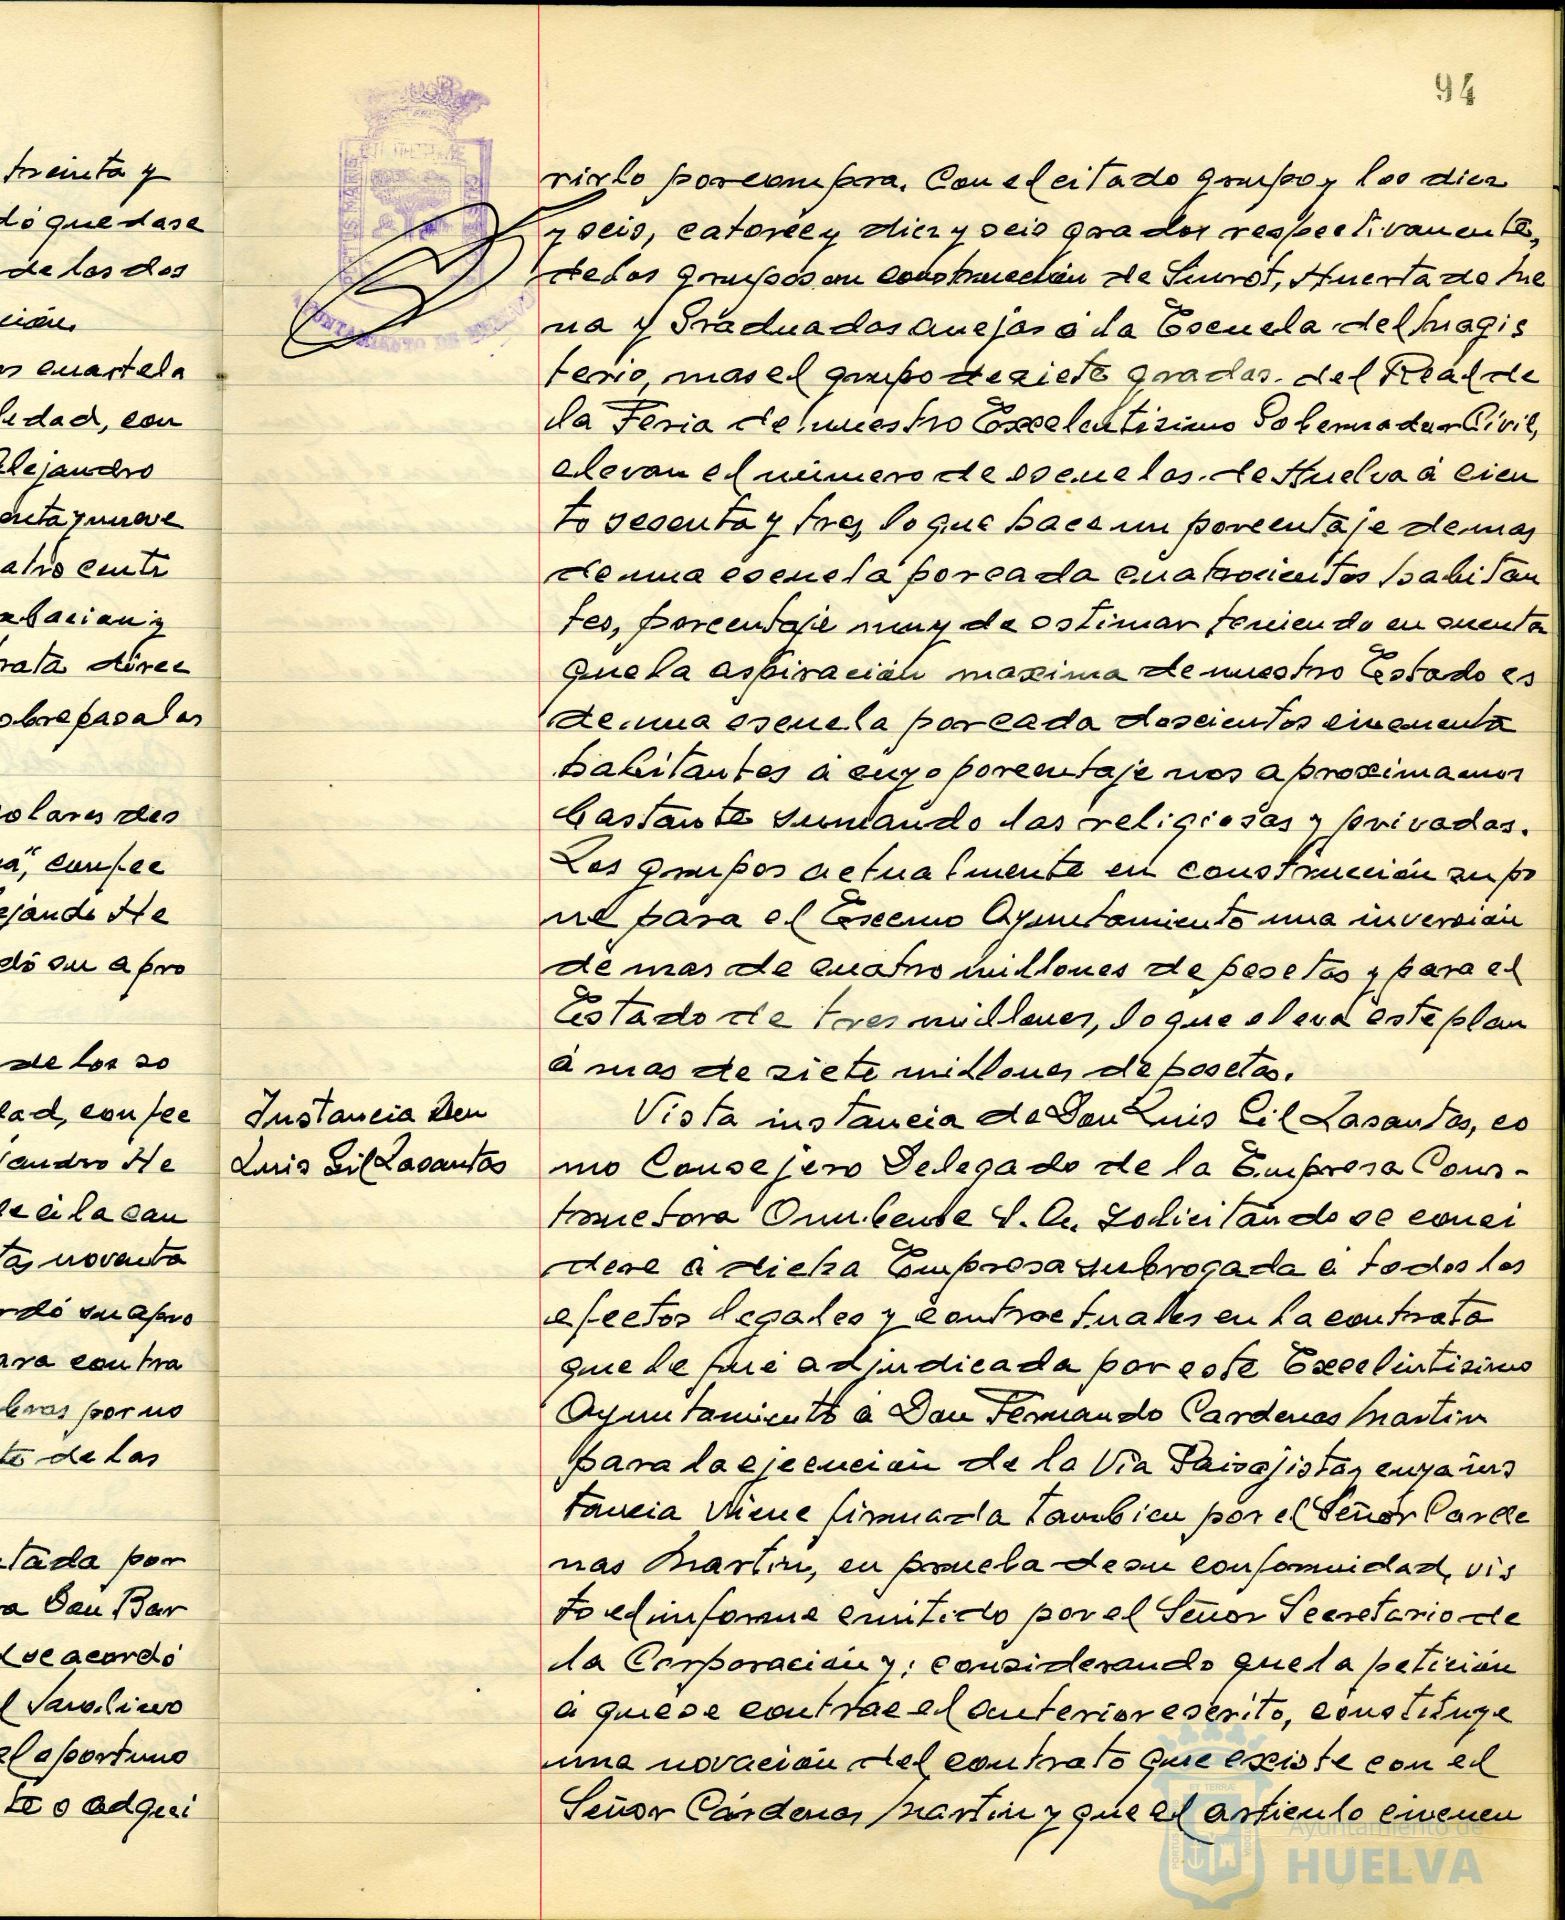 treinta y
dó quedase
de los dos
ción.
cuartela
ledad, con
Alejandro
enta y nueve
atro centi
robacion y
rata direc
sobrepasa las
olares des
na", confec
ejandro He
dó su apro
de los so
dad, confec
jandro He
de á la can
tas noventa
rdó su apro
ara contra
bras por no
te de las
tada por
Don Bar
se acordó
l Sandino
el oportuno
te o adqui
94
rirlo por compra. Con el citado grupo y los diez
y seis, catorce y diez y seis grados respectivamente,
de los grupos en construcción de Siurot, Huerta de Me
na y Graduadas anejas á la Escuela del Magis
terio, mas el grupo de siete grados del Real de
la Feria de nuestro Excelentisimo Gobernador Civil,
elevan el número de escuelas de Huelva á cien
to sesenta y tres, lo que hace un porcentaje de mas
de una escuela por cada cuatrocientos habitan
tes, porcentaje muy de estimar teniendo en cuenta
que la aspiración maxima de nuestro Estado es
de una escuela por cada doscientos cincuenta
habitantes á cuyo porcentaje nos aproximamos
bastante sumando las religiosas y privadas.
Los grupos actualmente en construcción supo
ne para el Excmo Ayuntamiento una inversión
de mas de cuatro millones de pesetas y para el
Estado de tres millones, lo que eleva este plan
á mas de siete millones de pesetas.
Instancia Don
Luis Gil Lasantas
Vista instancia de Don Luis Gil Lasantas, co
mo Consejero Delegado de la Empresa Cons-
tructora Onubense S. A. solicitando se consi
dere á dicha Empresa subrogada á todos los
efectos legales y contractuales en la contrata
que le fué adjudicada por este Excelentisimo
Ayuntamiento á Don Fernando Cardenas Martin
para la ejecución de la Via Paisajista, cuya ins
tancia viene firmada tambien por el Señor Carde
nas Martin, en prueba de su conformidad, vis
to el informe emitido por el Señor Secretario de
la Corporación y; considerando que la petición
á que se contrae el anterior escrito, constituye
una novación del contrato que existe con el
Señor Cárdenas Martin y que el articulo cincuen
AYUNTAMIENTO DE HUELVA
Ayuntamiento de
HUELVA